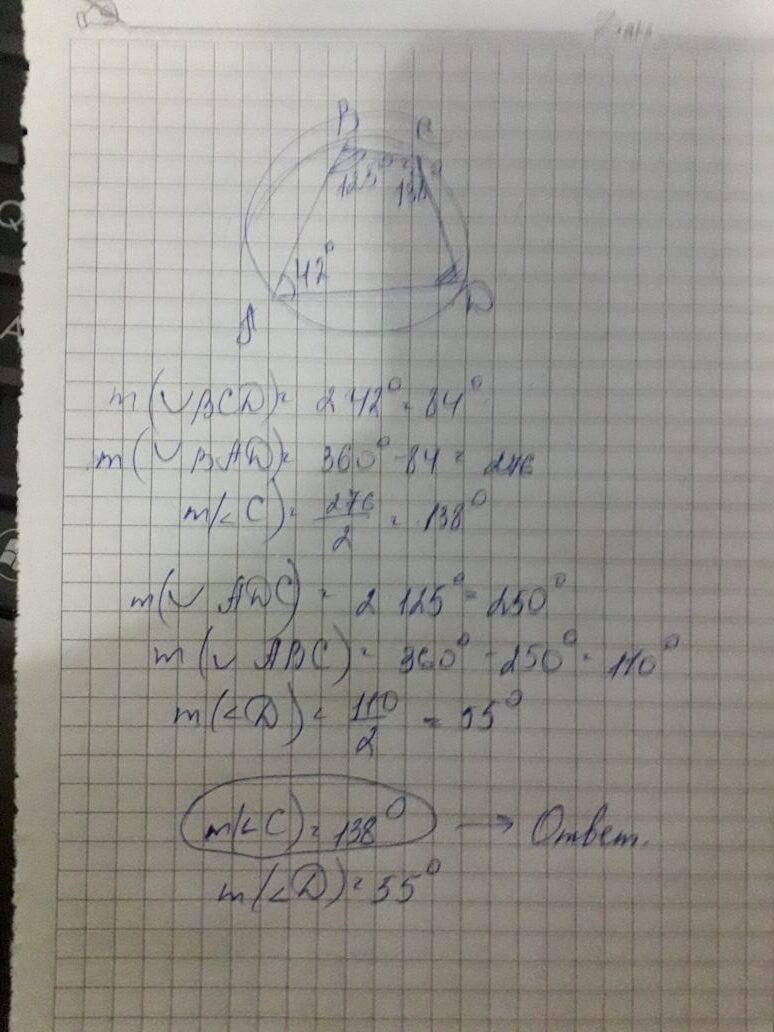 B C
125°
42°
A D
m(∪BCD) = 2 42° = 84°
m(∪BAD) = 360° - 84 = 276
m(<C) = 276/2 = 138°
m(∪ ADC) = 2 125° = 250°
m(∪ ABC) = 360° - 250° = 110°
m(<D) = 110/2 = 55°
m(<C) = 138° → Ответ.
m(<D) = 55°